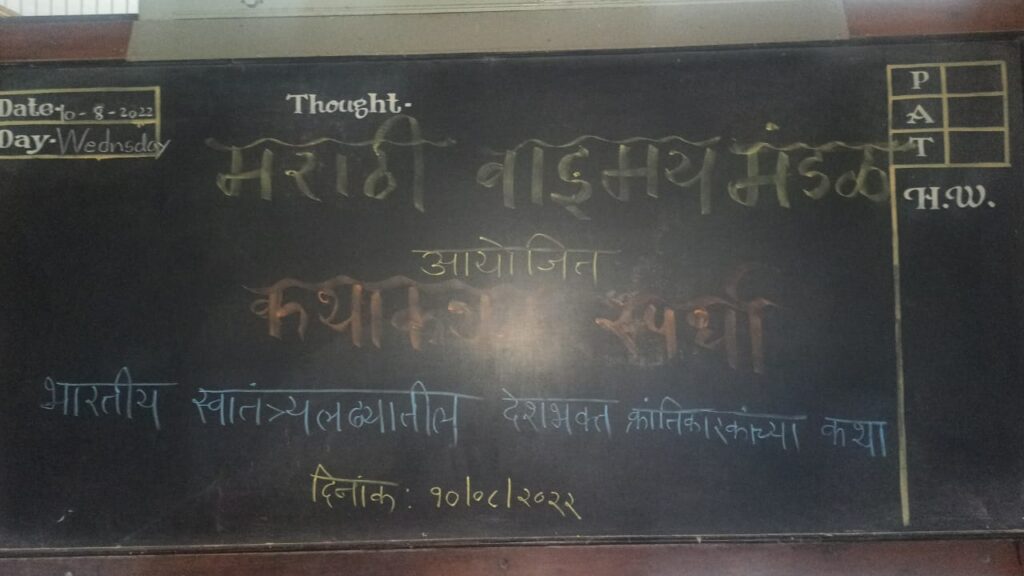 Date- 10-8-2022
Day- Wednsday
Thought-
P
A
T
H.W.
मराठी वाङ्मय मंडळ
आयोजित
कथाकथन स्पर्धा
भारतीय स्वातंत्र्यलढ्यातील देशभक्त क्रांतिकारकांच्या कथा
दिनांक: १०/०८/२०२२